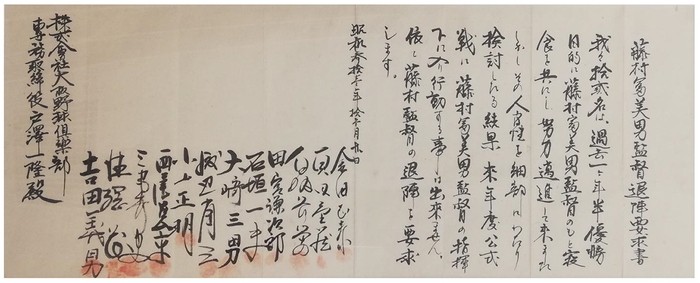 藤村富美男監督退陣要求書
我々拾弐名は、過去一ヶ年半優勝
目的に藤村富美男監督のもと寝
食を共にし努力邁進して来ました
しかしその人間性を細部にわたり
検討したる結果、来年度公式
戦に藤村富美男監督の指揮
下に入り行動する事は出来ません。
依て藤村監督の退陣を要求
します。
昭和参拾壱年
株式会社大阪野球倶楽部
専務取締役戸澤一隆殿
真田重蔵
田宮謙次郎
石垣一夫
大崎三男
小山正明
西尾慈高
三宅秀史
吉田義男